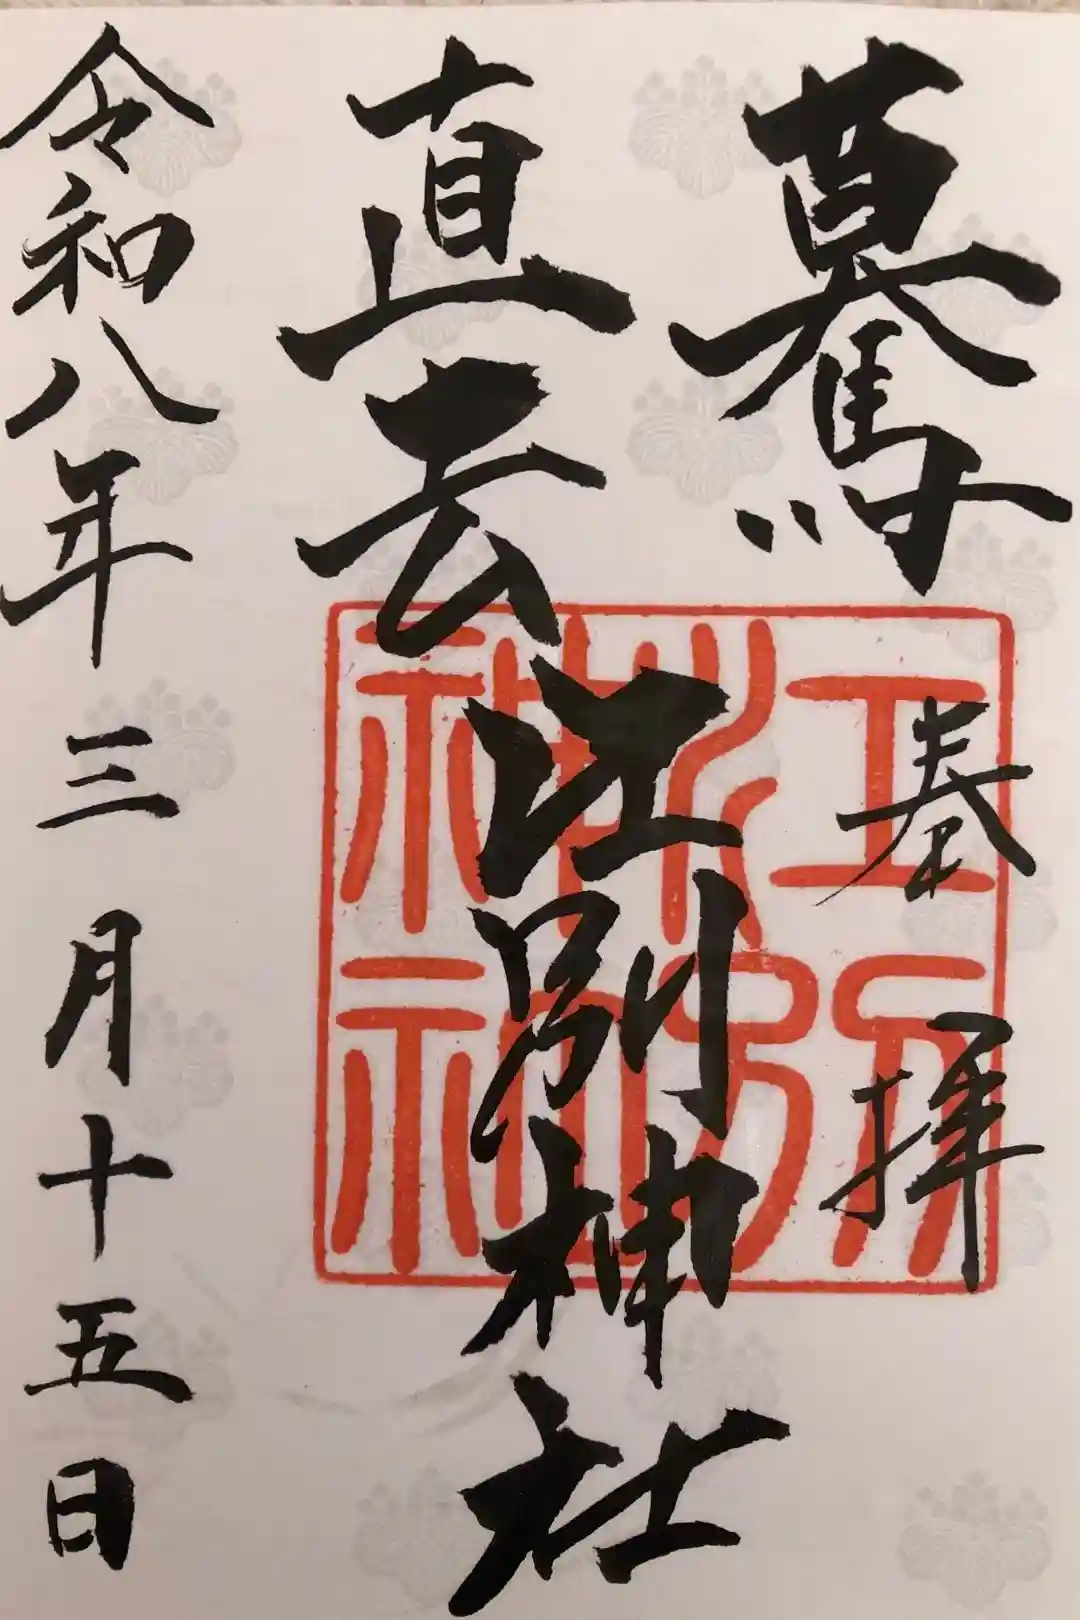 驀
直去
奉拝
江別神社
令和八年三月十五日
江別
神社